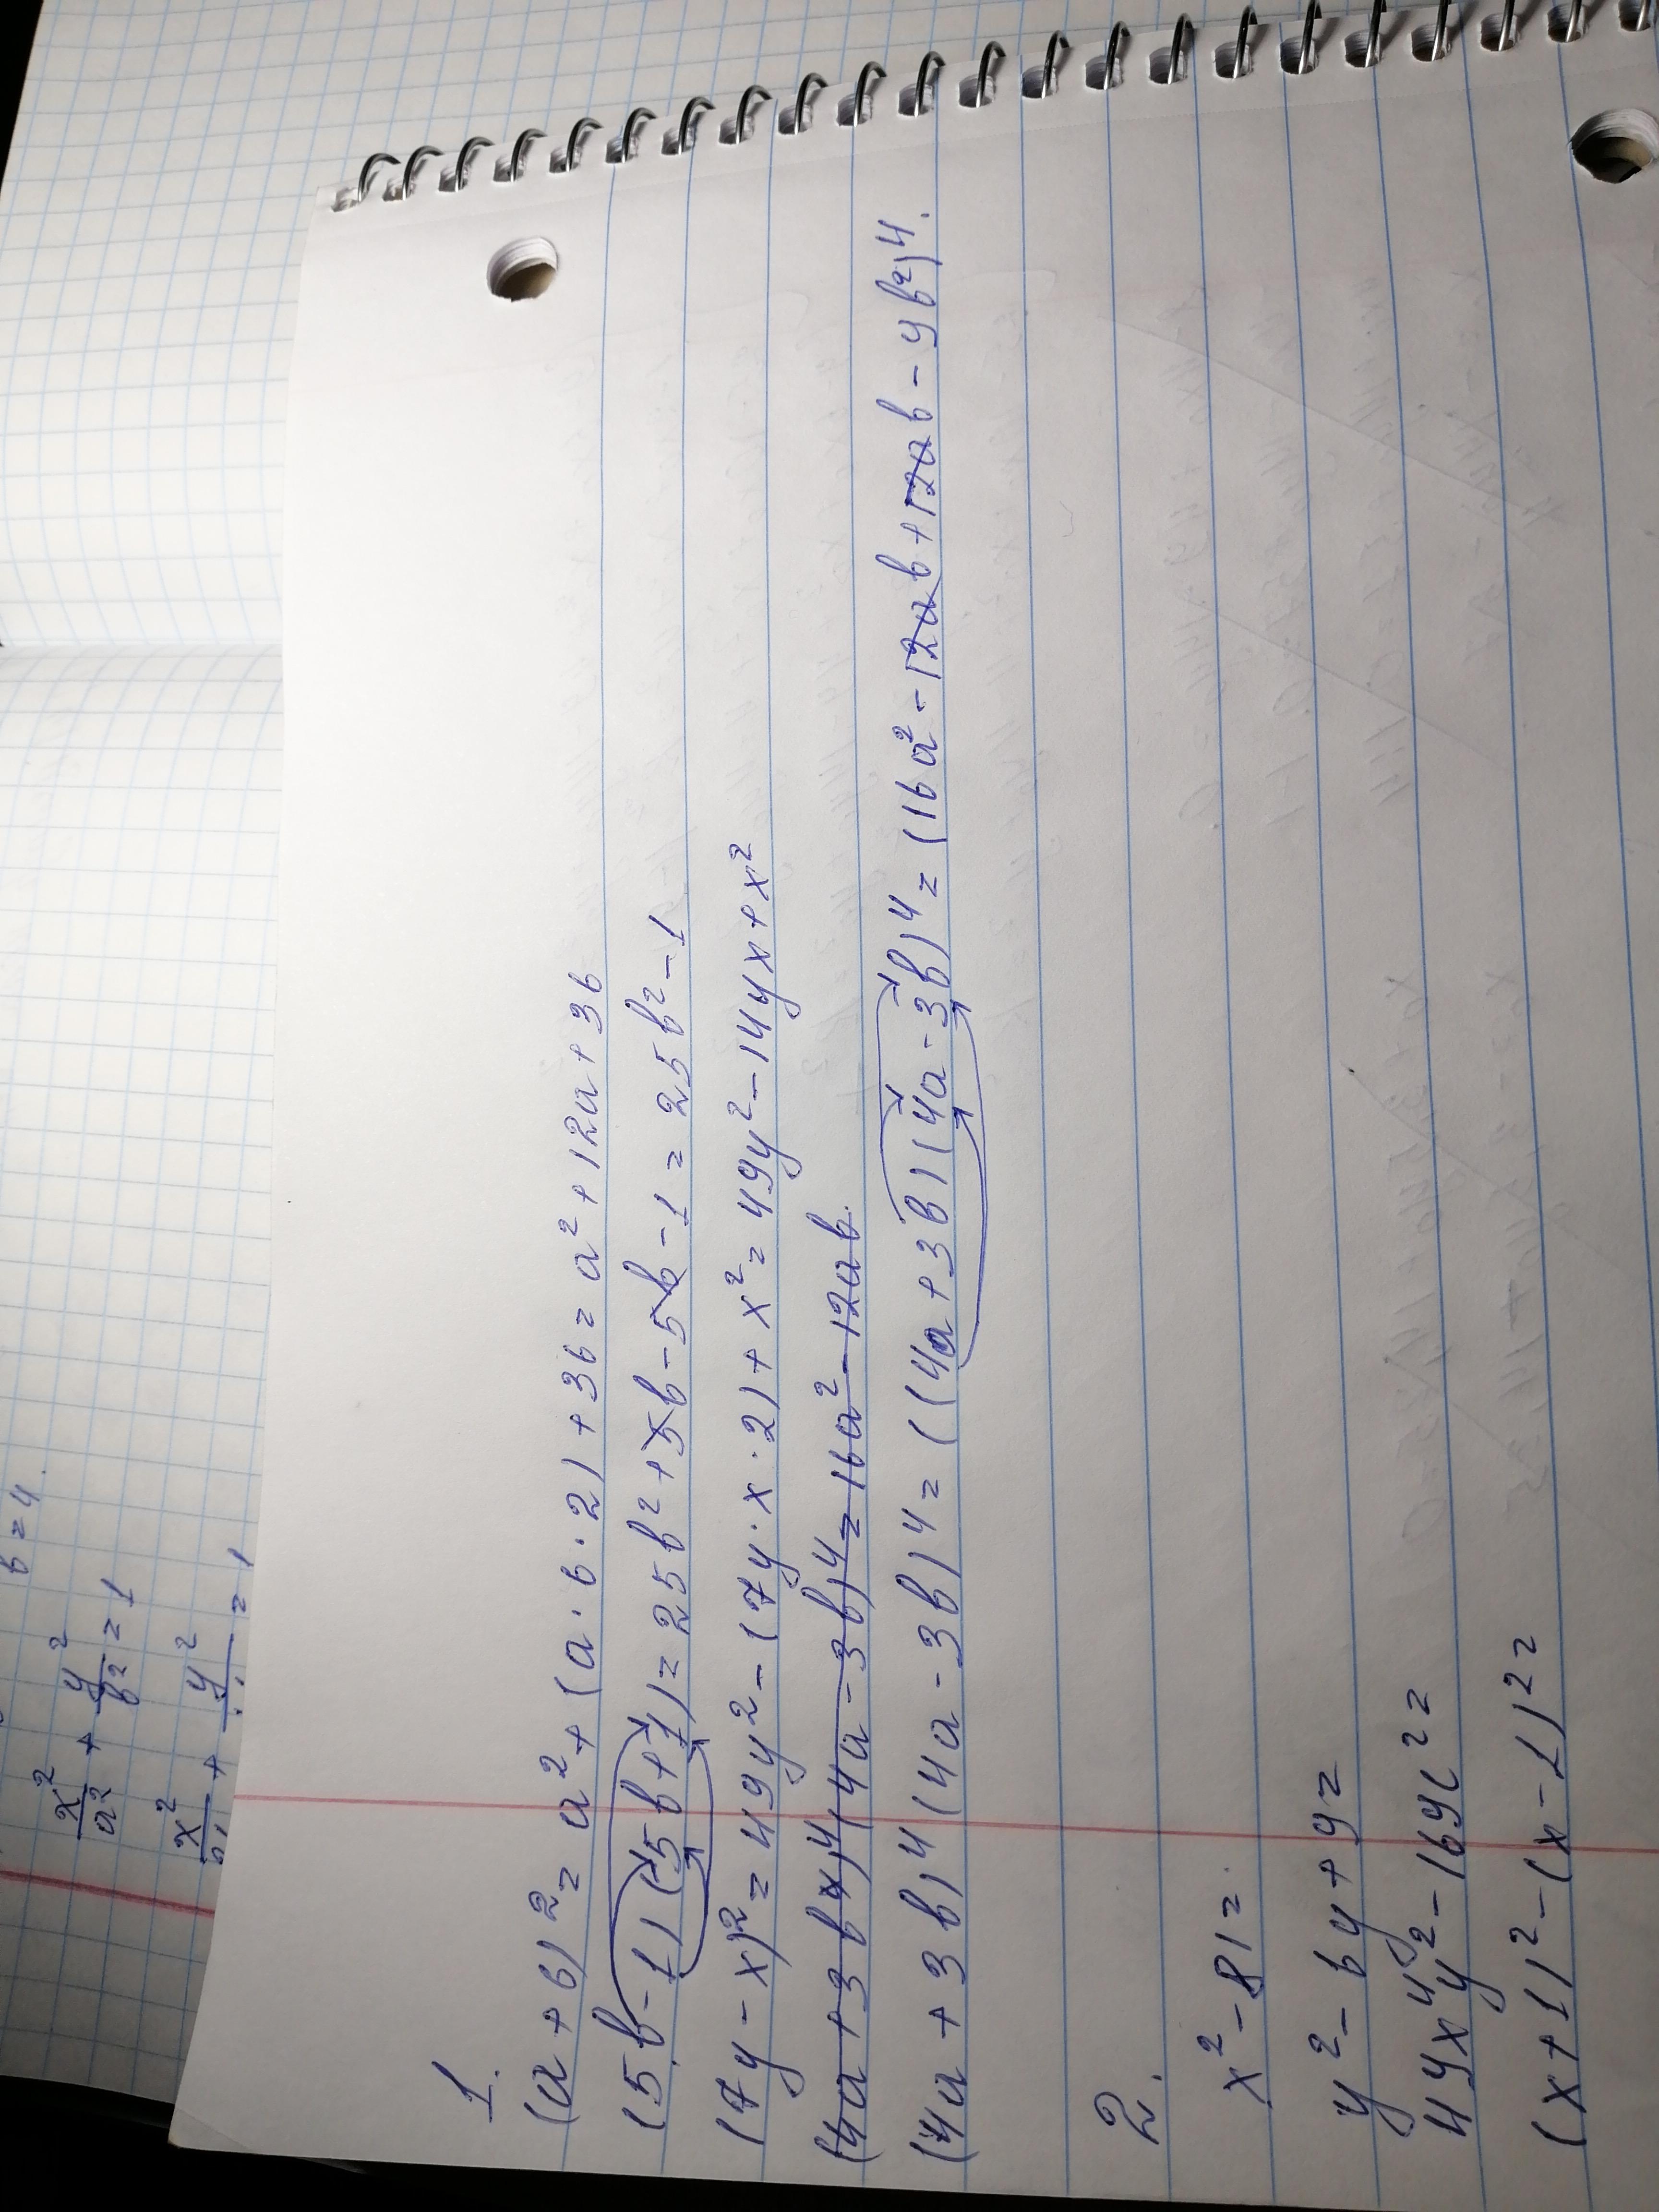 в=4.
x²/a² + y²/в² = 1
x² + y² = 1
1.
(a+6)² = a² + (a·6·2) + 36 = a² + 12a + 36
(5в-1)(5в+1) = 25в² + 5в - 5в - 1 = 25в² - 1
(7y-x)² = 49y² - (7y·x·2) + x² = 49y² - 14yx + x²
(4a+3в)⁴(4a-3в)⁴ = 16a² - 12ав.
(4a+3в)⁴(4a-3в)⁴ = ((4a+3в)(4a-3в)⁴ = (16a² - 12aв + 12aв - 9в²)⁴.
2.
x² - 81 =
y² - 6y + 9 =
49x⁴y² - 169c² =
(x+1)² - (x-1)² =